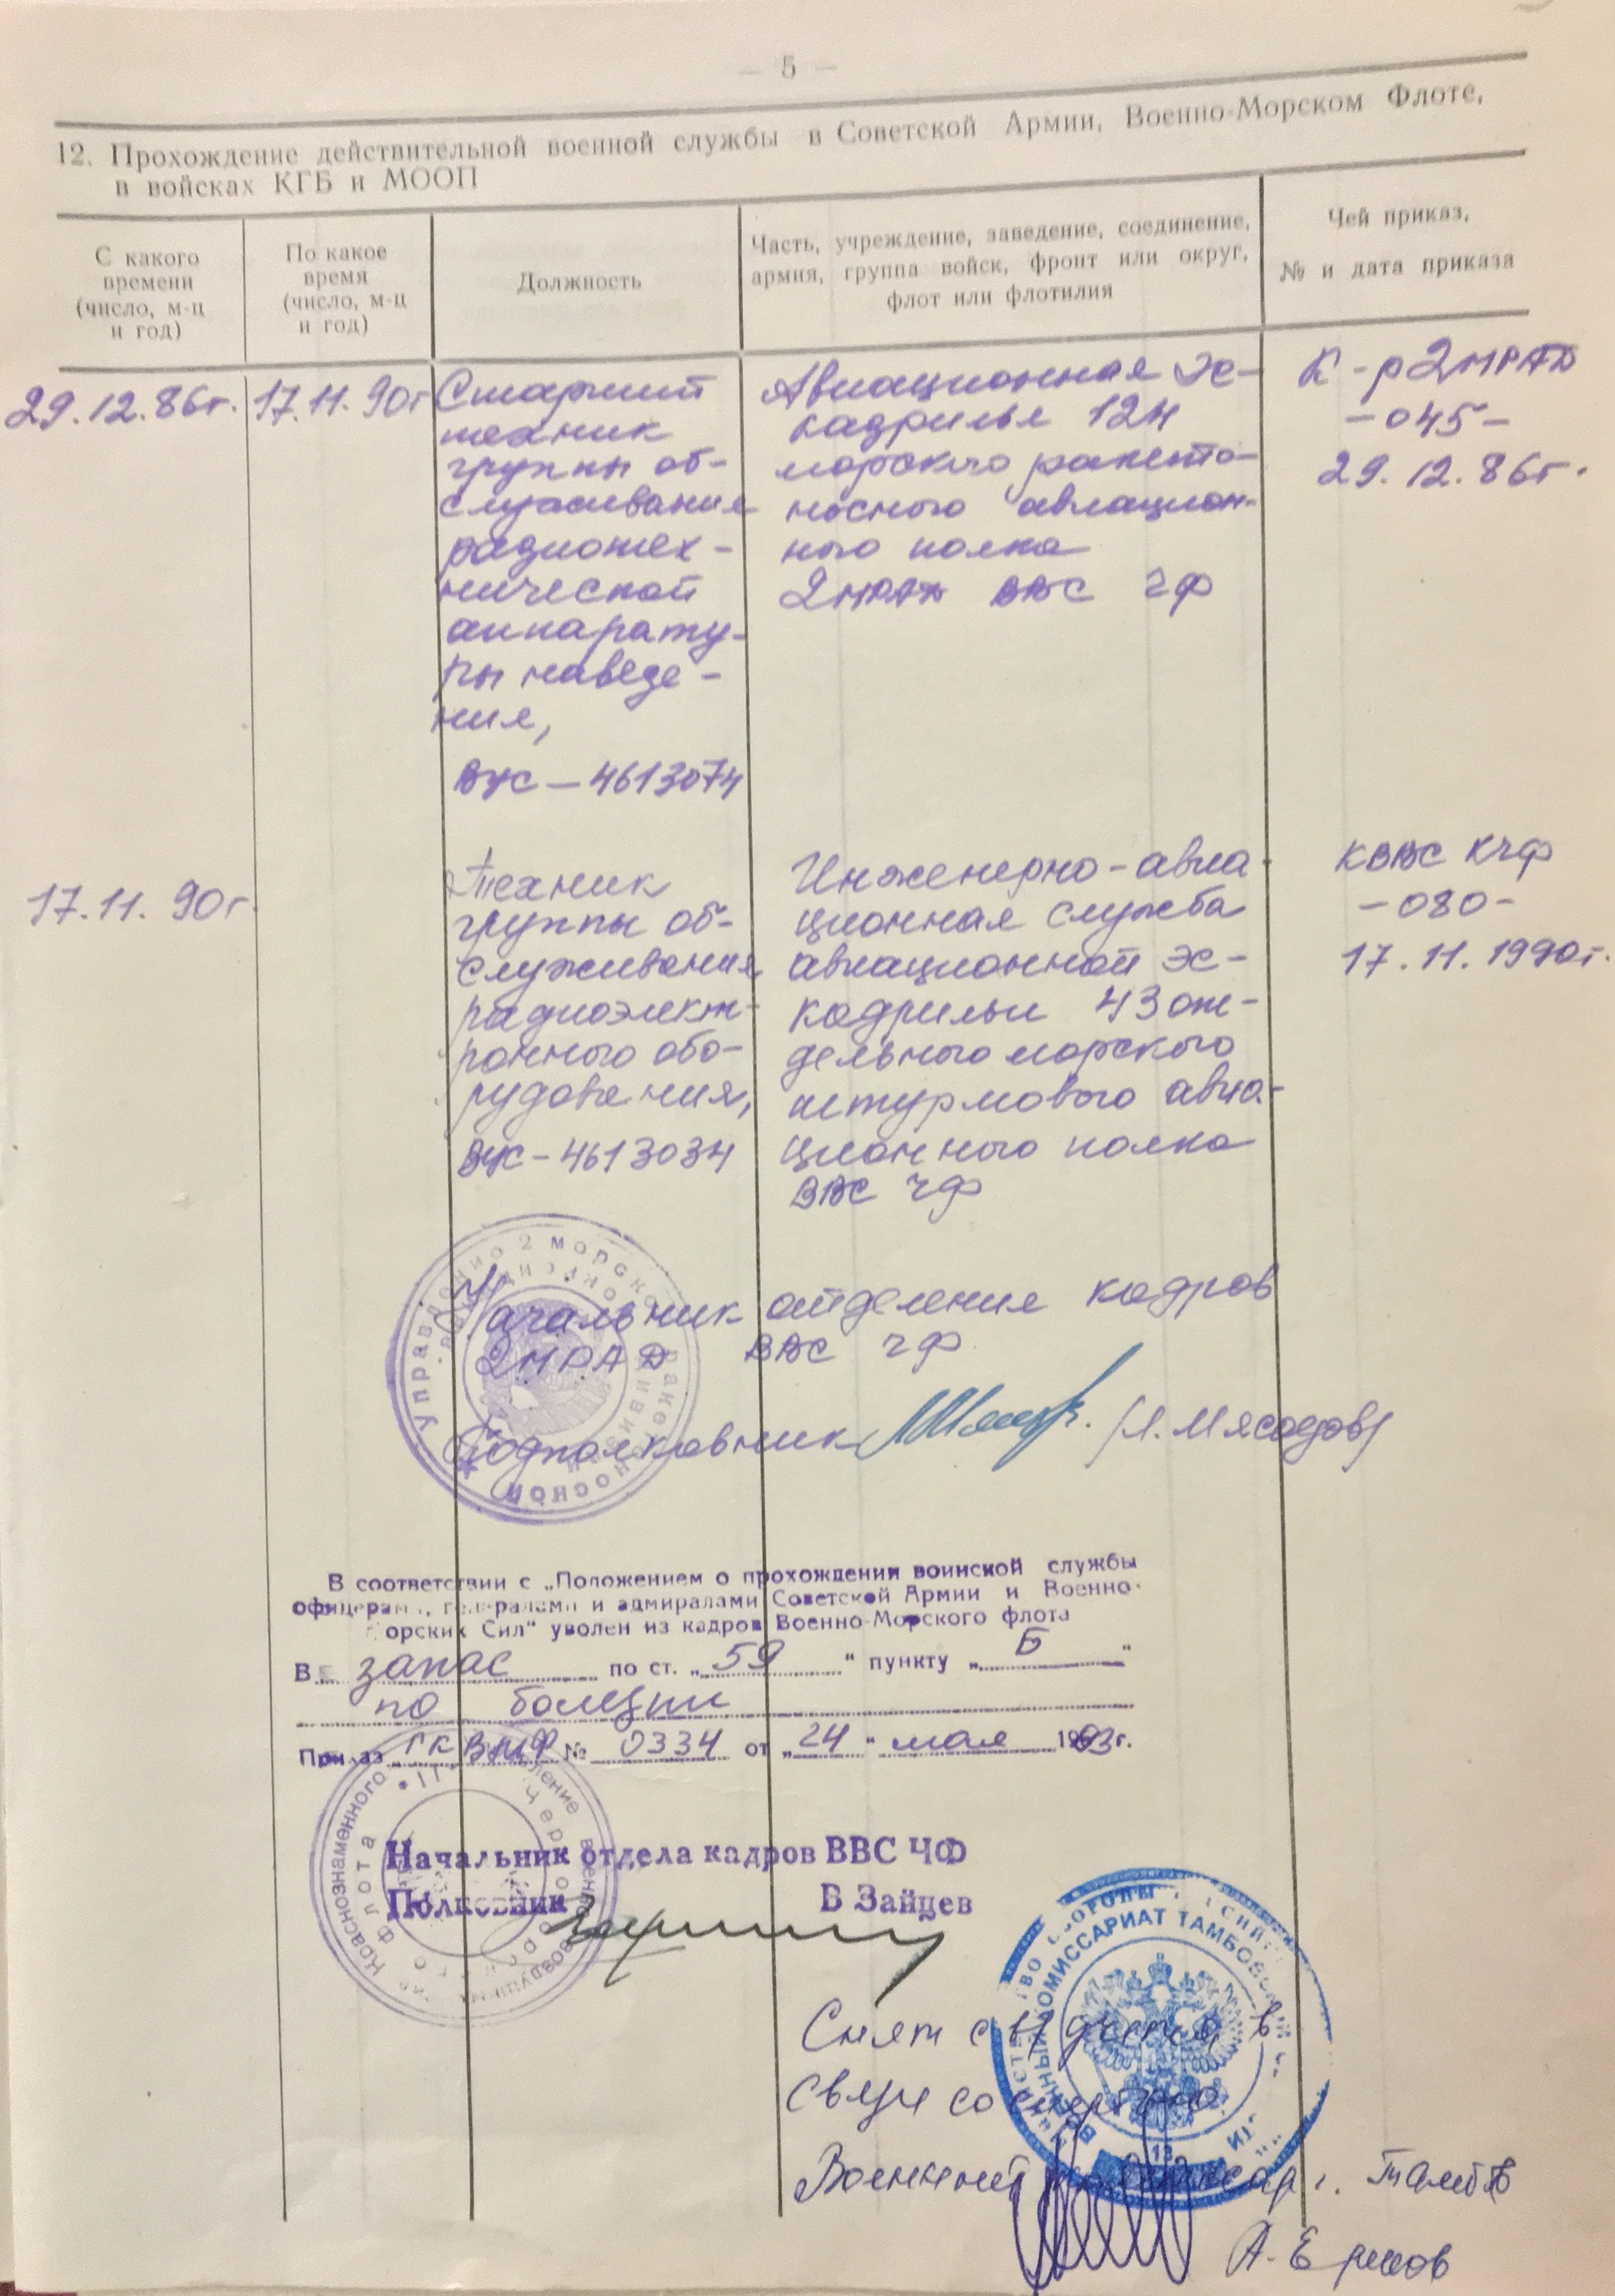 — 5 —
12. Прохождение действительной военной службы в Советской Армии, Военно-Морском Флоте,
в войсках КГБ и МООП
С какого
времени
(число, м-ц
и год)
По какое
время
(число, м-ц
и год)
Должность
Часть, учреждение, заведение, соединение,
армия, группа войск, фронт или округ,
флот или флотилия
Чей приказ,
№ и дата приказа
29.12.86г.
17.11.90г
Старший
техник
группы об-
служивания
радиотех-
нической
аппарату-
ры наведе-
ния,
ВУС – 4613074
Авиационная эс-
кадрилья 124
морского ракето-
носного авиацион-
ного полка
2МРАД ВВС ЧФ
К-р 2МРАД
-045-
29.12.86г.
17.11.90г.
Техник
группы об-
служивания
радиоэлект-
ронного обо-
рудования,
ВУС – 4613034
Инженерно-авиа-
ционная служба
авиационной эс-
кадрильи 43 от-
дельного морского
штурмового авиа-
ционного полка
ВВС ЧФ
КВВС КЧФ
-080-
17.11.1990г.
Управление 2 морской ракетоносной
Начальник отделения кадров
2МРАД ВВС ЧФ
Подполковник /Л. Мясоедов/
В соответствии с „Положением о прохождении воинской службы
офицерами, генералами и адмиралами Советской Армии и Военно-
Морских Сил“ уволен из кадров Военно-Морского флота
В запас по ст. „59“ пункту „Б“
по болезни
Приказ ГК ВМФ № 0334 от „24“ мая 1993г.
Краснознаменного
флота
Начальник отдела кадров ВВС ЧФ
Полковник В Зайцев
ВОЕННЫЙ КОМИССАРИАТ ТАМБОВСКОЙ
Снят с в/учета в
связи со смертью
Военный комиссар г. Тамбов
А. Ершов